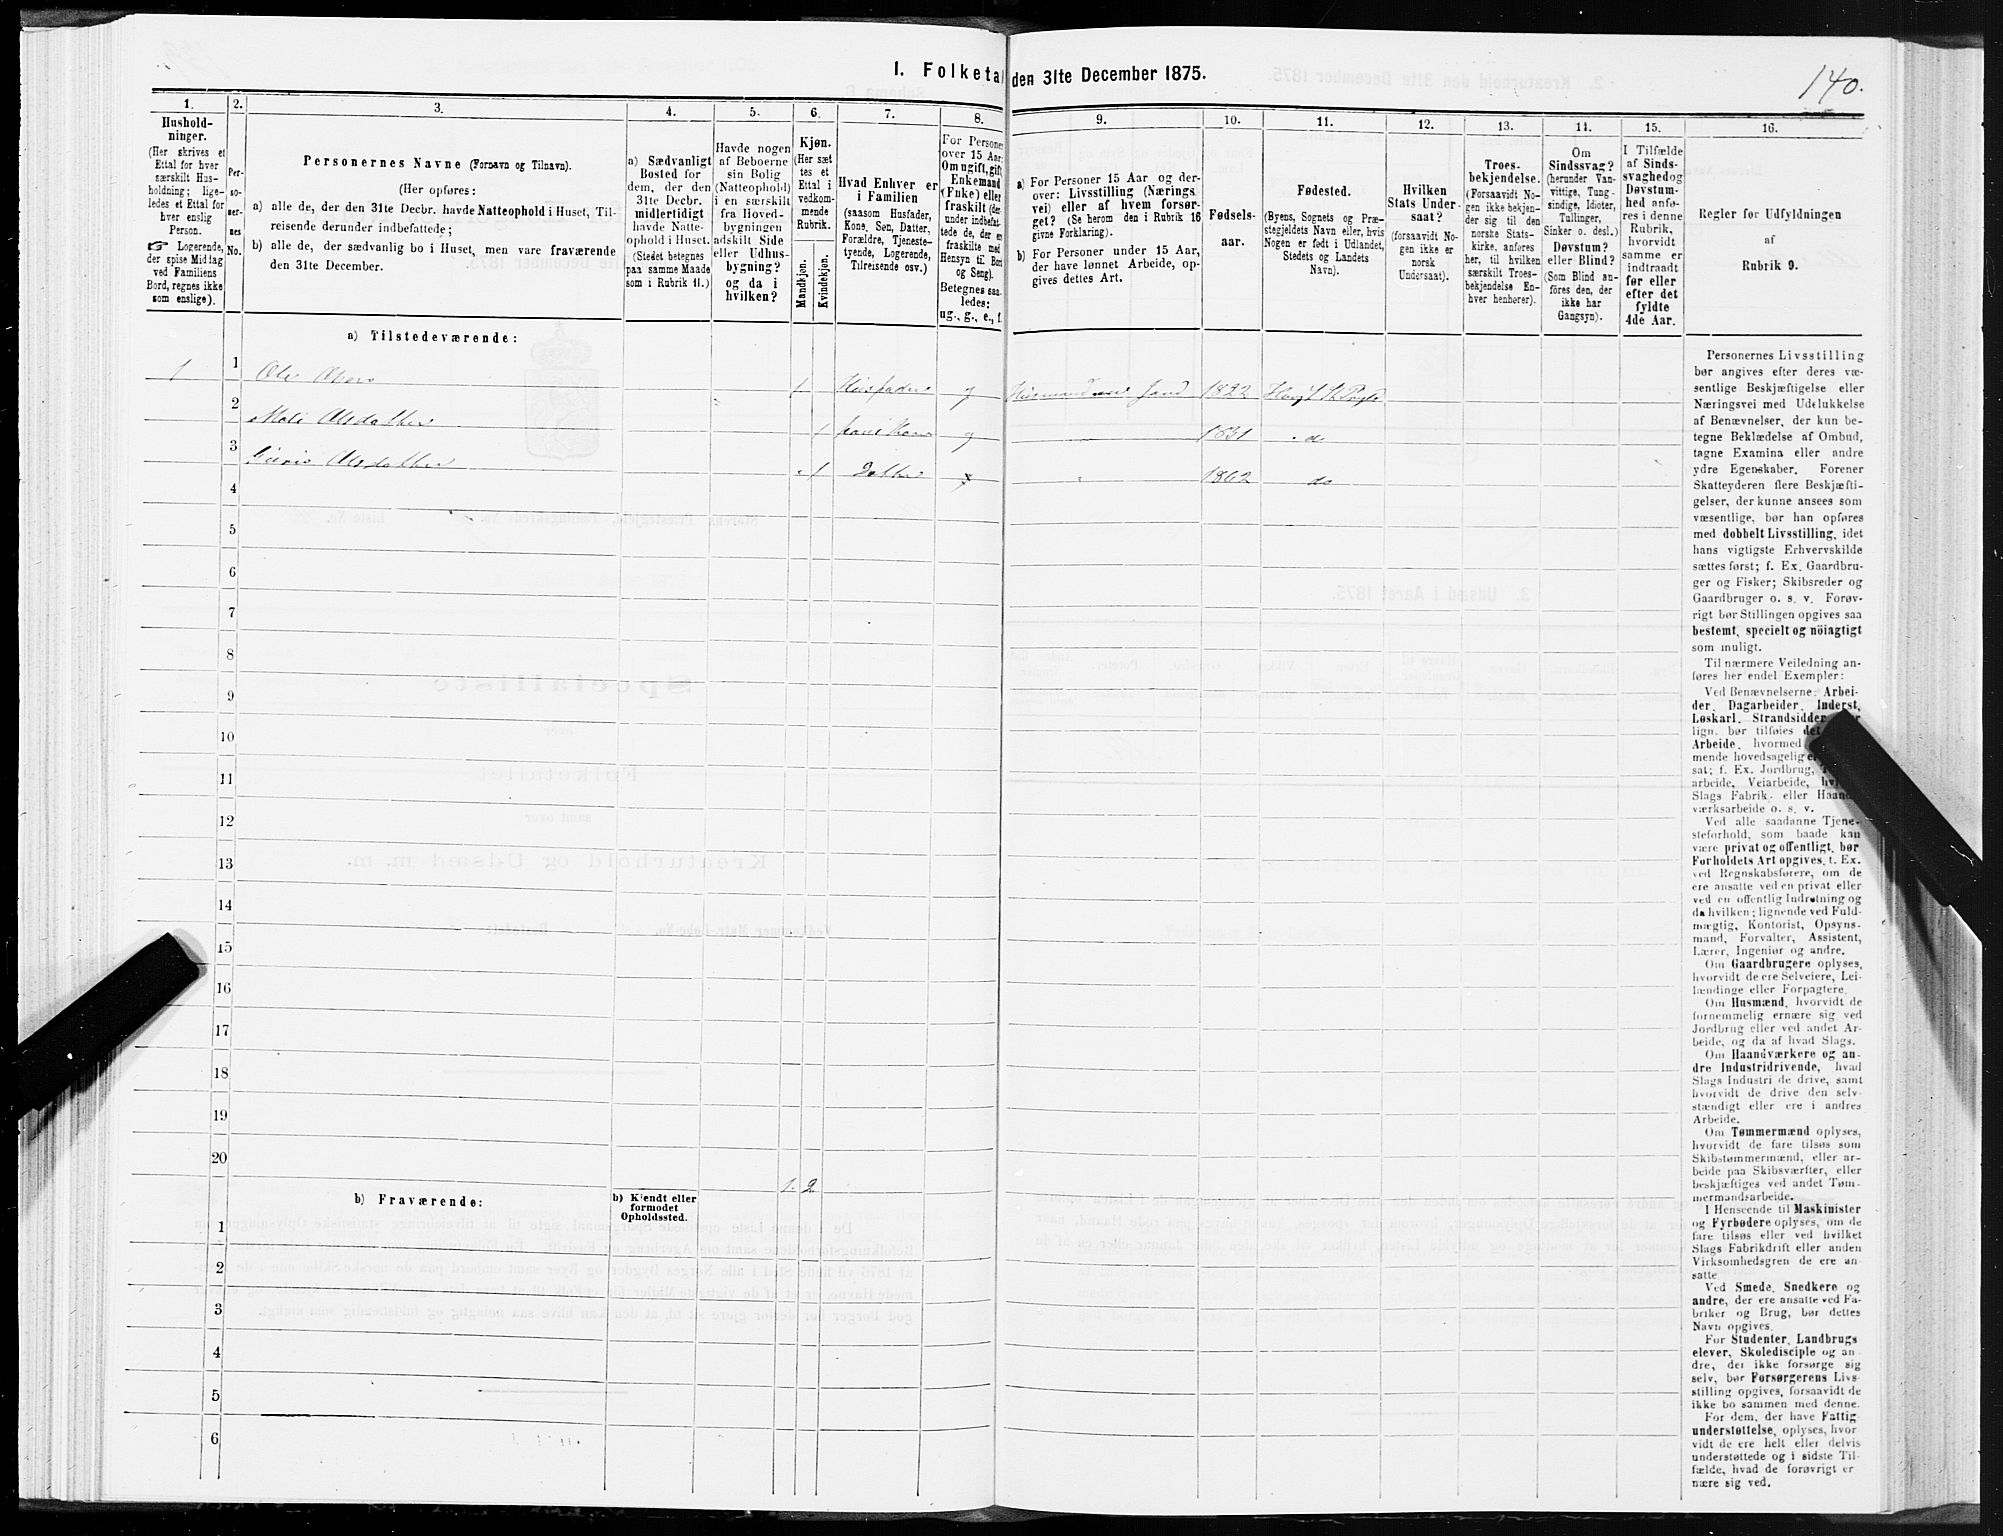 I. Folketal den 31te December 1875.
140.
1.
Hushold-
ninger.
(Her skrives et
Ettal for hver
særskilt Hus-
holdning; lige-
ledes et Ettal for
hver enslig
Person.
☞ Logerende,
der spise Middag
ved Familiens
Bord, regnes ikke
som enslige).
2.
Per-
so-
ner-
nes
No.
3.
Personernes Navne (Fornavn og Tilnavn).
(Her opføres:
a) alle de, der den 31te Decbr. havde Natteophold i Huset, Til-
reisende derunder indbefattede;
b) alle de, der sædvanlig bo i Huset, men vare fraværende
den 31te December.
4.
a) Sædvanligt
Bosted for
dem, der den
31te Decbr.
midlertidigt
havde Natte-
ophold i Huset.
(Stedet betegnes
paa samme Maade
som i Rubrik 11.)
5.
Havde nogen
af Beboerne
sin Bolig
(Natteophold)
i en særskilt
fra Hoved-
bygningen
adskilt Side
eller Udhus-
bygning?
og da i
hvilken?
6.
Kjøn.
(Her sæt
tes et
Ettal i
vedkom-
mende
Rubrik.
Mandkjøn.
Kvindekjøn.
7.
Hvad Enhver er
i Familien
(saasom Husfader,
Kone, Søn, Datter,
Forældre, Tjeneste-
tyende, Logerende,
Tilreisende osv.)
8.
For Personer
over 15 Aar:
Om ugift, gift
Enkemand
(Enke) eller
fraskilt (der
under indbefat-
tede de, der er
fraskilte med
Hensyn til Bord
og Seng).
Betegnes saa-
ledes:
ug., g., e., f.
9.
a) For Personer 15 Aar og der-
over: Livsstilling (Nærings
vei) eller af hvem forsør-
get? (Se herom den i Rubrik 16
givne Forklaring).
b) For Personer under 15 Aar,
der have lønnet Arbeide, op-
gives dettes Art.
10.
Fødsels-
aar.
11.
Fødested.
(Byens, Sognets og Præ-
stegjeldets Navn eller, hvis
Nogen er født i Udlandet,
Stedets og Landets
Navn).
12.
Hvilken
Stats Under
saat?
(forsaavidt No-
gen ikke er
norsk
Undersaat).
13.
Troes-
bekjendelse.
(Forsaavidt No-
gen ikke bekjen-
der sig til den
norske Stats-
kirke, anføres
her, til hvilken
særskilt Troes-
bekjendelse En-
hver henhører).
14.
Om
Sindssvag?
(herunder Van-
vittige, Tung-
sindige, Idioter,
Tullinger,
Sinker o. desl.)
Døvstum?
eller Blind?
(Som Blind an-
føres den, der
ikke har
Gangsyn).
15.
I Tilfælde
af Sinds-
svaghed og
Døvstum-
hed anfø-
res i denne
Rubrik,
hvorvidt
samme er
indtraadt
før eller
efter det
fyldte
4de Aar.
16.
Regler før Udfyldningen
af
Rubrik 9.
a) Tilstedeværende:
1 1 Ole 1 Husfader g Husmand Jord 1832
2 Mali Olsdatter 1 hans Kone g 1831 do
3 Olsdatter 1 Datter 1862 do
4
5
6
7
8
9
10
11
12
13
14
15
16
17
18
19
20
1. 2
b) Fraværende:
b) Kjendt eller
formodet
Opholdssted.
1
2
3
4
5
6
Personernes Livsstilling
bør angives efter deres væ-
sentlige Beskjæftigelse eller
Næringsvei med Udelukkelse
af Benævnelser, der kun be-
tegne Beklædelse af Ombud,
tagne Examina eller andre
ydre Egenskaber. Forener
Skatteyderen flere Beskjæfti-
gelser, der kunne ansees som
væsentlige, bør han opføres
med dobbelt Livsstilling, idet
hans vigtigste Erhvervskilde
sættes først; f. Ex. Gaardbru-
ger og Fisker; Skibsreder og
Gaardbruger o. s. v. Forøv-
rigt bør Stillingen opgives saa
bestemt, specielt og nöiagtigt
som muligt.
Til nærmere Veiledning an-
føres her endel Exempler:
Ved Benævnelserne: Arbei-
der, Dagarbeider, Inderst,
Løskarl, Strandsidder
lign. bør tilføies
Arbeide, hvormed
mende hovedsagelig
sat; f. Ex. Jordbrug,
arbeide, Veiarbeide,
Slags Fabrik- eller
værksarbeide o. s. v.
Ved alle saadanne Tjene-
steforhold, som baade kan
være privat og offentligt, bør
Forholdets Art opgives, t. Ex.
ved Regnskabsførere, om de
ere ansatte ved en privat eller
ved en offentlig Indretning og
da hvilken; lignende ved Fuld-
mægtig, Kontorist, Opsyns-
mand, Forvalter, Assistent,
Lærer, Ingeniør og andre.
Om Gaardbrugere oplyses,
hvorvidt de ere Selveiere, Lei-
lændinge eller Forpagtere.
Om Husmænd, hvorvidt de
fornemmelig ernære sig ved
Jordbrug eller ved andet Ar-
beide, og da af hvad Slags.
Om Haandværkere og an-
dre Industridrivende, hvad
Slags Industri de drive, samt
hvorvidt de drive den selv-
stændigt eller ere i andres
Arbeide.
Om Tømmermænd oplyses,
hvorvidt de fare tilsøs som
Skibstømmermænd, eller ar-
beide paa Skibsværfter, eller
beskjæftiges ved andet Tøm-
mermandsarbeide.
I Henseende til Maskinister
og Fyrbødere oplyses, om de
fare tilsøs eller ved hvilket
Slags Fabrikdrift eller anden
Virksomhedsgren de ere an-
satte.
Ved Smede, Snedkere og
andre, der ere ansatte ved Fa-
briker og Brug, bør dettes
Navn opgives.
For Studenter, Landbrugs
elever, Skoledisciple og an
dre, der ikke forsørge sig
selv, bør Forsørgerens Livs-
stilling opgives, forsaavidt de
ikke bo sammen med denne.
For dem, der have Fattig
understøttelse, oplyses, hvor
vidt de ere helt eller delvis
understøttede og i sidste Til-
fælde, hvad de forøvrigt er
nære sig ved.